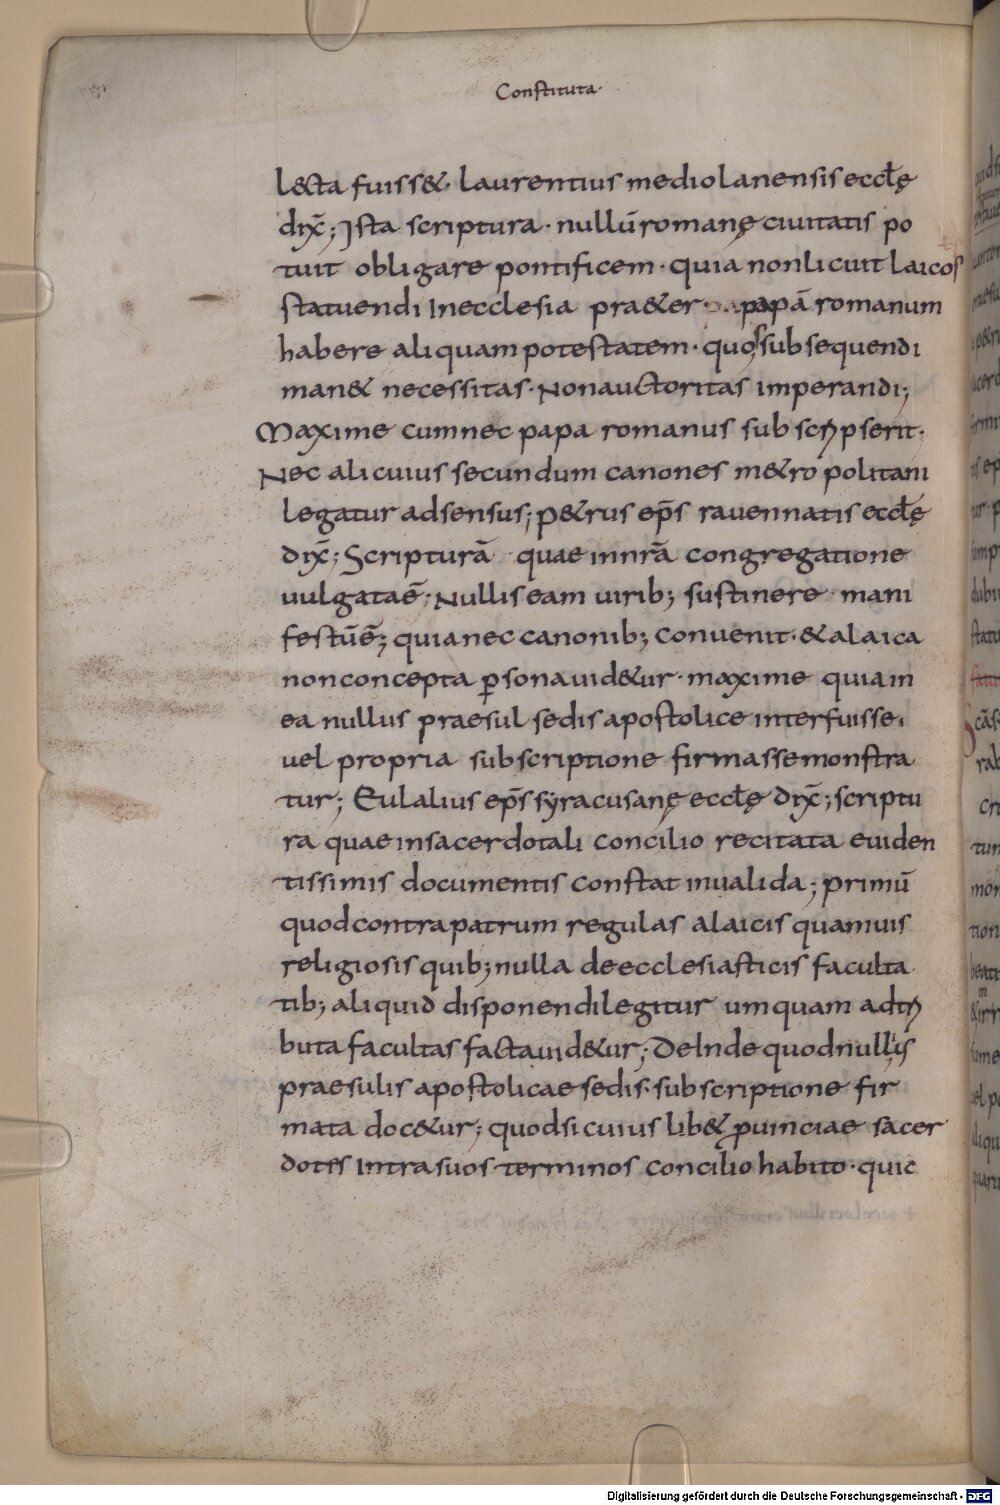 Constituta
l&cta fuiss&· laurentius mediolanensis eccłę
dix̄; Ista scriptura· nullū romanę ciuitatis po
tuit obligare pontificem· quia non licuit laicos
statuendi In ecclesia pra&er papā romanum
habere aliquam potestatem· quos subsequendi
man& necessitas· Non auctoritas imperandi;
Maxime cum nec papa romanus subscripserit·
Nec alicuius secundum canones m&ropolitani
legatur adsensus; p&rus ep̄s rauennatis eccłę
dix̄; Scripturā quae in nr̄a congregatione
uulgata ē· Nullis eam uirib; sustinere mani
festū ē; quia nec canonib; conuenit· & a laica
non concepta ꝑsona uid&ur· maxime quia in
ea nullus praesul sedis apostolice interfuisse·
uel propria subscriptione firmasse monstra
tur; Eulalius ep̄s syracusanę eccłę dix̄; scriptu
ra quae in sacerdotali concilio recitata euiden
tissimis documentis constat inualida; primū
quod contra patrum regulas a laicis quamuis
religiosis quib; nulla de ecclesiasticis faculta
tib; aliquid disponendi legitur umquam adtri
buta facultas facta uid&ur; DeInde quod nullius
praesulis apostolicae sedis· subscriptione fir
mata doc&ur; quod si cuius lib& ꝓuinciae sacer
dotes Intra suos terminos concilio habito· quic
Digitalisierung gefördert durch die Deutsche Forschungsgemeinschaft - DFG